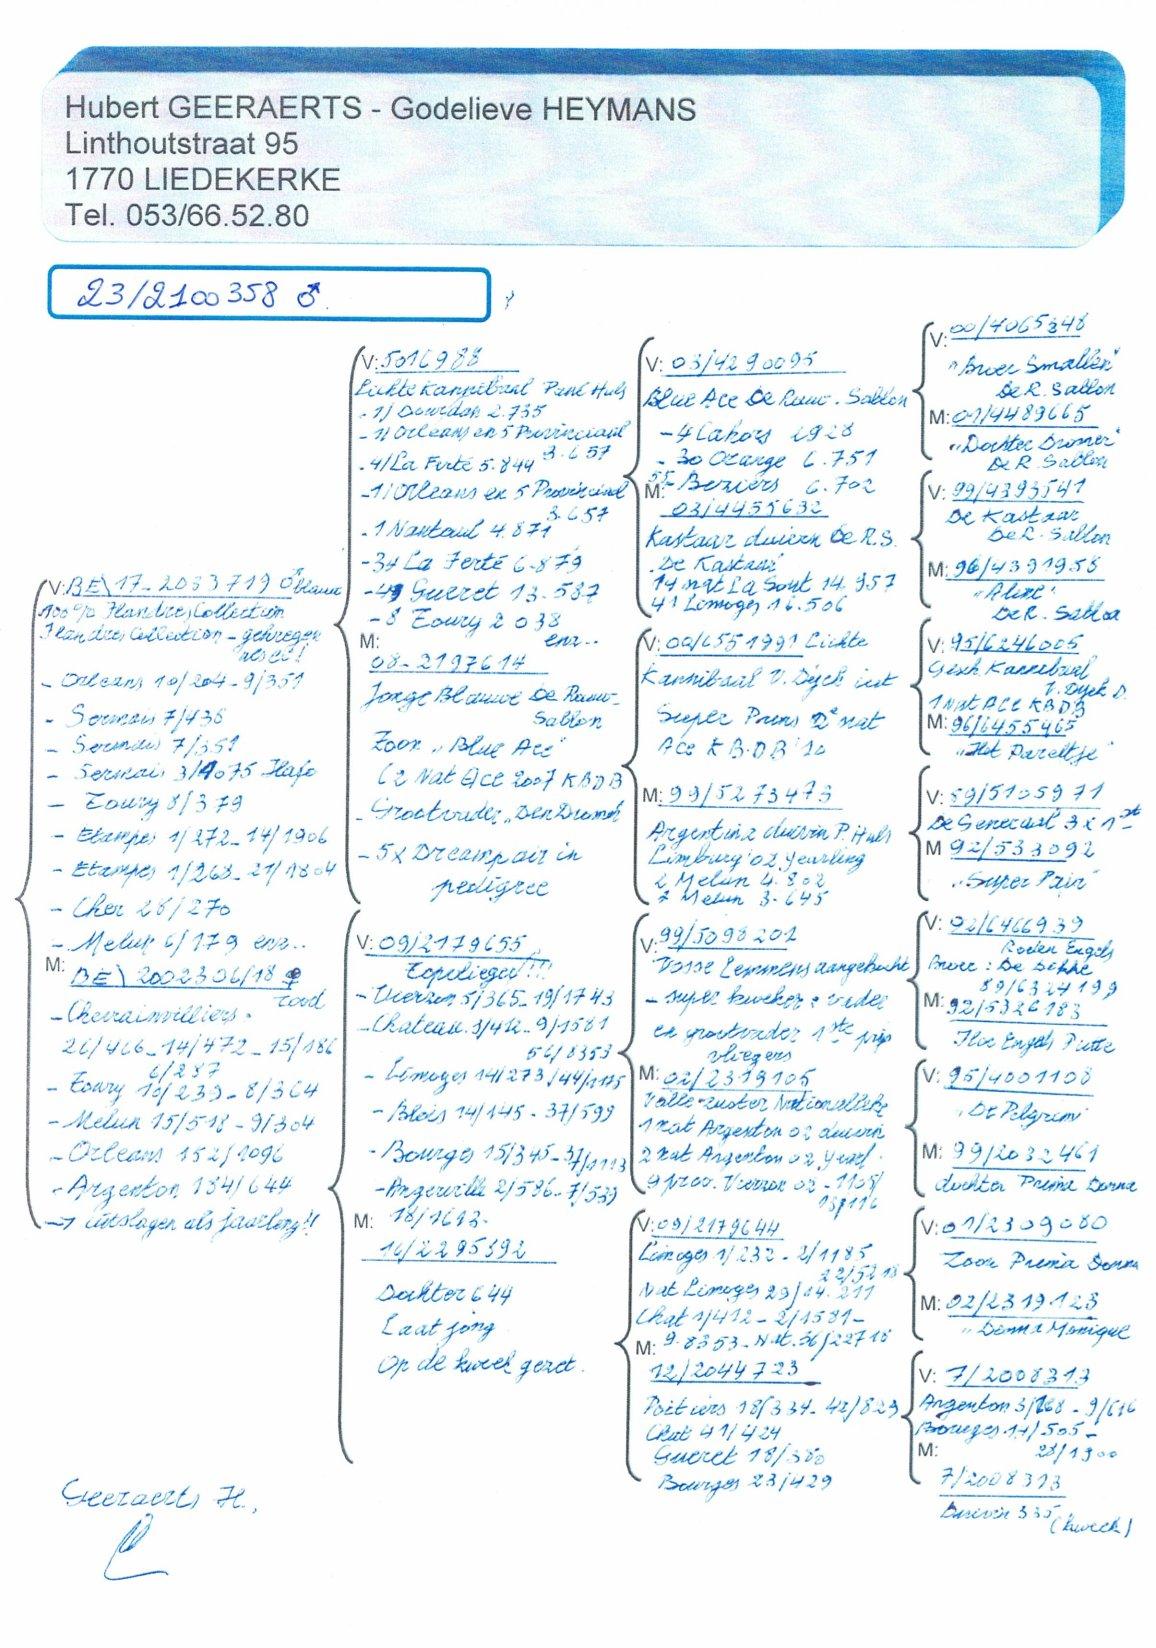 Hubert GEERAERTS - Godelieve HEYMANS
Linthoutstraat 95
1770 LIEDEKERKE
Tel. 053/66.52.80
23/2100358 ♂
V: BE\17-2083719 ♂ blauw
100% Flandres Collection
Flandres Collection - gekregen
als ei!
- Orleans 10/204 - 9/351
- Sermais 7/438
- Sermais 7/351
- Sermais
- Toury 8/379
- Etampes 1/272 - 14/1906
- Etampes 1/268 - 21/1804
- Cher 26/270
- Melun 6/179 enz..
M:
BE\2002306/18 ♀
rood
- Chevrainvilliers -
26/466 - 14/472 - 15/186
6/287
- Toury 10/239 - 8/364
- Melun 15/518 - 9/304
- Orleans 152/1096
- Argenton 184/644
→ uitslagen als jaarling!!
V: 5016988
Lichte Kannibaal Paul Huls
- 1/ Dourdan 2.735
- 1/ Orleans en 5 Provinciaal
3.657
- 4/La Ferté 5.844
- 1/ Orleans en 5 Provinciaal
3.657
- 1 Nanteuil 4.871
- 34 La Ferté 6.879
- Gueret 13.587
- 8 Toury 2 038
enz..
M:
08-2197614
Jonge Blauwe De Rauw-
Sablon
Zoon "Blue Ace"
(2 Nat Ace 2007 KBDB
- Grootvader "Den Dromer
- 5x Dreampair in
pedigree
V: 09/2179655
Topvlieger!!!
- Vierzon 5/365 - 19/1743
- Chateau. 3/412 - 9/1581
56/8353
- Limoges 14/273/44/1175
- Blois 14/145 - 37/599
- Bourges 15/345 - 37/1113
- Angerville 2/586 - 7/539
M: 18/1613.
14/2295392
Dochter 644
Laat jong
Op de kweek gezet.
V: 03/4290095
Blue Ace De Rauw - Sablon
- 4 Cahors 1928
- 30 Orange 6.751
55 Beziers 6.702
M:
03/4455632
Kastaar duivin De R.S.
"De Kastaar"
14 nat La Sout 14.957
41 Limoges 16.506
V: 00/6551991 Lichte
Kannibaal V. Dyck uit
Super Prins 2e nat
Ace KBDB
M: 99/5273473
Argentina duivin P. Huls
Limburg '02 yearling
2 Melun 4.802
7 Melun 3.645
V: 99/5098201
Vosse Lemmens aangekocht
- super kweker: vader
en grootvader 1ste prijs
vliegers
M: 02/2319105
Volle zuster Nationalleke
1 nat Argenton 02 duivin
2 nat Argenton 02 yearl.
9 prov. Vierzon 02 - 1105/
V: 09/2179644
Limoges 1/232 - 2/1185
22/5218
Nat Limoges
Chat 1/412 - 2/1581 -
M: 9.8353 - Nat. 36/22718
12/2044723
Poitiers 18/334 - 42/823
Chat 41/424
Gueret 18/380
Bourges 23/429
V: 00/4065348
"Broer Smallen"
De R. Sablon
M: 01/4489665
"Dochter Dromer"
De R. Sablon
V: 99/4393541
De Kastaar
De R. Sablon
M: 96/4391958
"Aline"
De R. Sablon
V: 95/6246005
Gesch Kannibaal
V. Dyck D.
1 Nat Ace KBDB
M: 96/6455465
"Het Pareltje"
V: 89/5105971
De Generaal 3 x 1ste
M 92/533092
"Super Pair"
V: 02/6466939
Roden Engels
Broer: De Dikke
89/6324199
M: 92/5326183
Engels Putte
V: 95/4001108
"De Pelgrim"
M: 99/2032461
dochter Prima Donna
V: 01/2309080
Zoon Prima Donna
M: 02/2319123
"Donna Monique
V: 7/2008313
Argenton 3/168 - 9/616
Bourges 14/505 -
M: 28/1900
7/2008323
Duivin 335
(kweek)
Geeraerts H.,